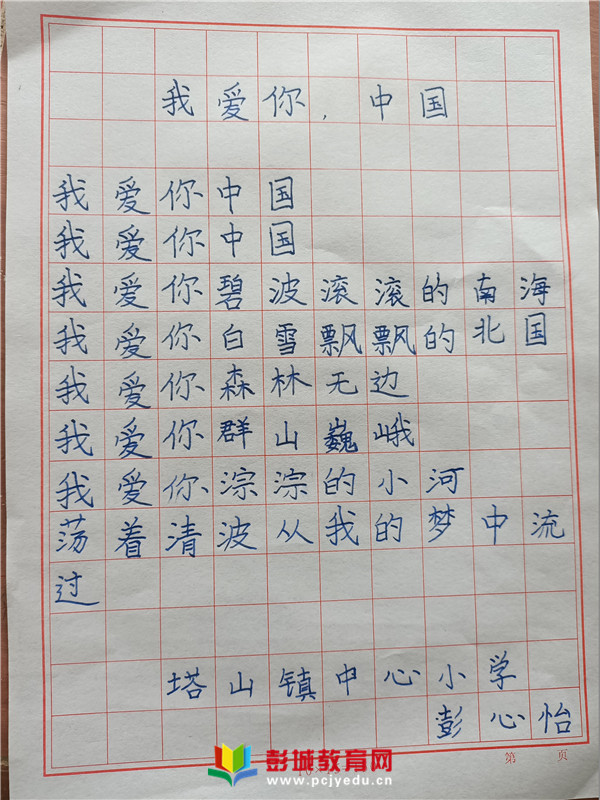 我爱你,中国
我爱你中国
我爱你中国
我爱你碧波滚滚的南海
我爱你白雪飘飘的北国
我爱你森林无边
我爱你群山巍峨
我爱你淙淙的小河
荡着清波从我的梦中流
过
塔山镇中心小学
彭心怡
第 页
彭城教育网
www.pcjyedu.cn